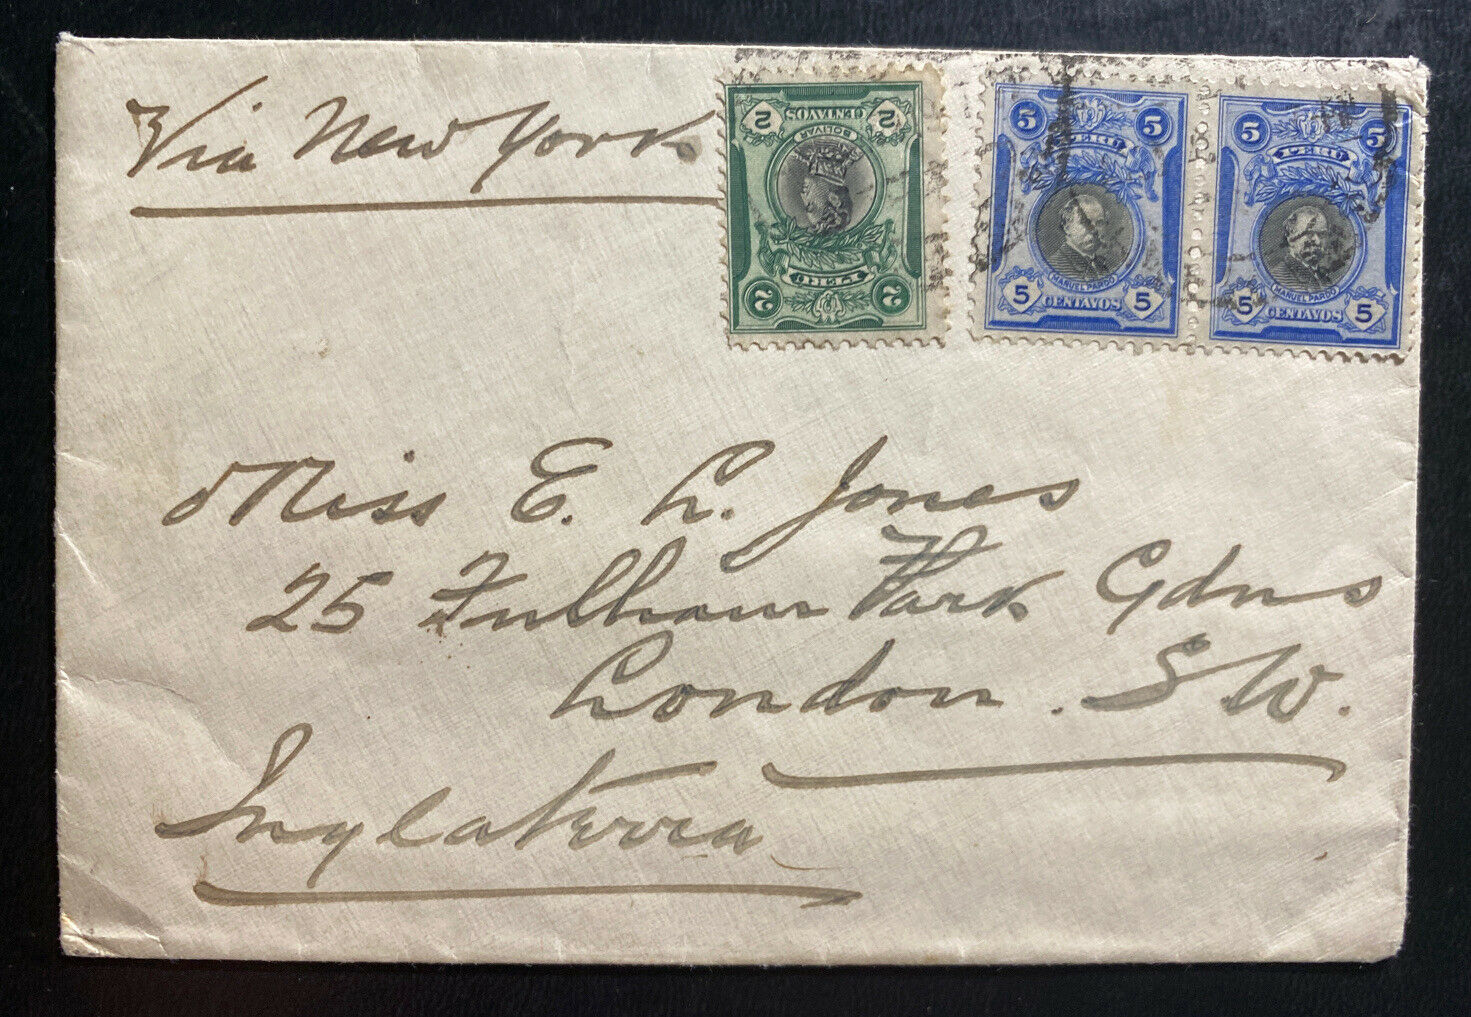 Via New York
2 CENTAVOS 2
BOLIVAR
PERU
2 2
5 5
PERU
MANUEL PARDO
5 CENTAVOS 5
5 5
PERU
MANUEL PARDO
5 CENTAVOS 5
Miss E. L. Jones
25 Fulham Park Gdns
London. S.W.
Inglaterra